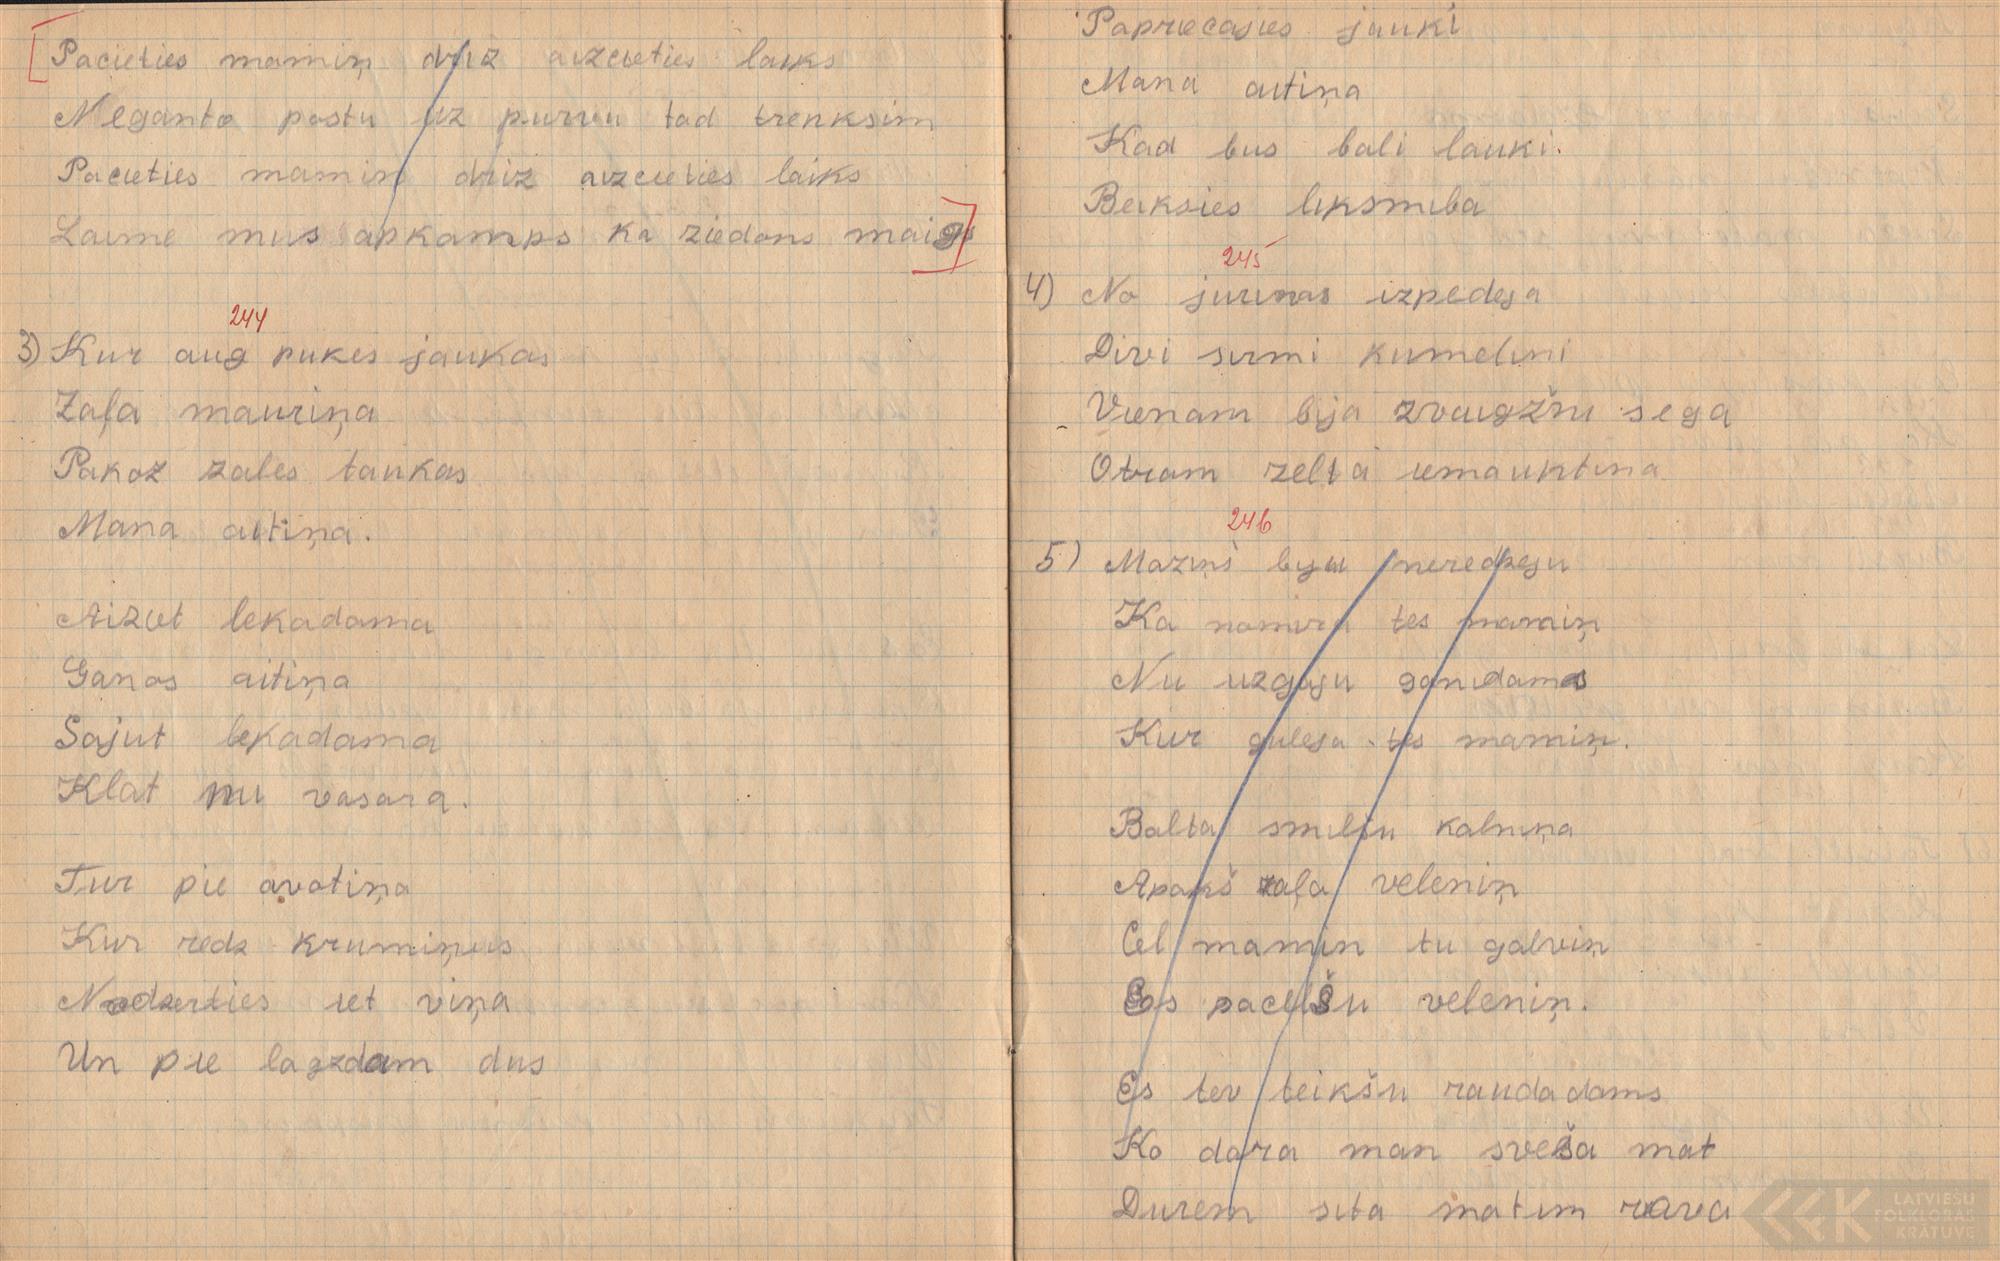 Pacieties mamiņ driz aizcieties laiks
Neganto postu uz purvu tad trenksim
Pacieties mamiņ driz aizcieties laiks
Laime mus apkamps ka ziedons maigs
244
3) Kur aug pukes jaukas
Zaļa mauriņa
Pakoz zales taukas
Mana aitiņa.
Aiziet lekadama
Ganos aitiņa
Sajut lekadama
Klat nu vasara.
Tur pie avotiņa
Kur redz krumiņus
Nodzerties iet viņa
Un pie lagzdam dus
Papriecasies jauki
Mana aitiņa
Kad bus bali lauki.
Beiksies liksmiba
245
4) No jurinas izpedeja
Divi sirmi kumelini
Vienam bija zvaigžņu sega
Otram zelta iemauktina
246
5) Maziņš biju neredzeju
Ka nomira tes mamiņ
Nu uzgaju ganidams
Kur guleja tes mamiņ.
Balta smilšu kalniņa
Apakš zaļa veleniņ
Cel mamiņ tu galviņ
Es pacelšu veleniņ.
Es tev teikšu raudadams
Ko dara man sveša mat
Durem sita matim rava
LATVIEŠU
FOLKLORAS
KRĀTUVE